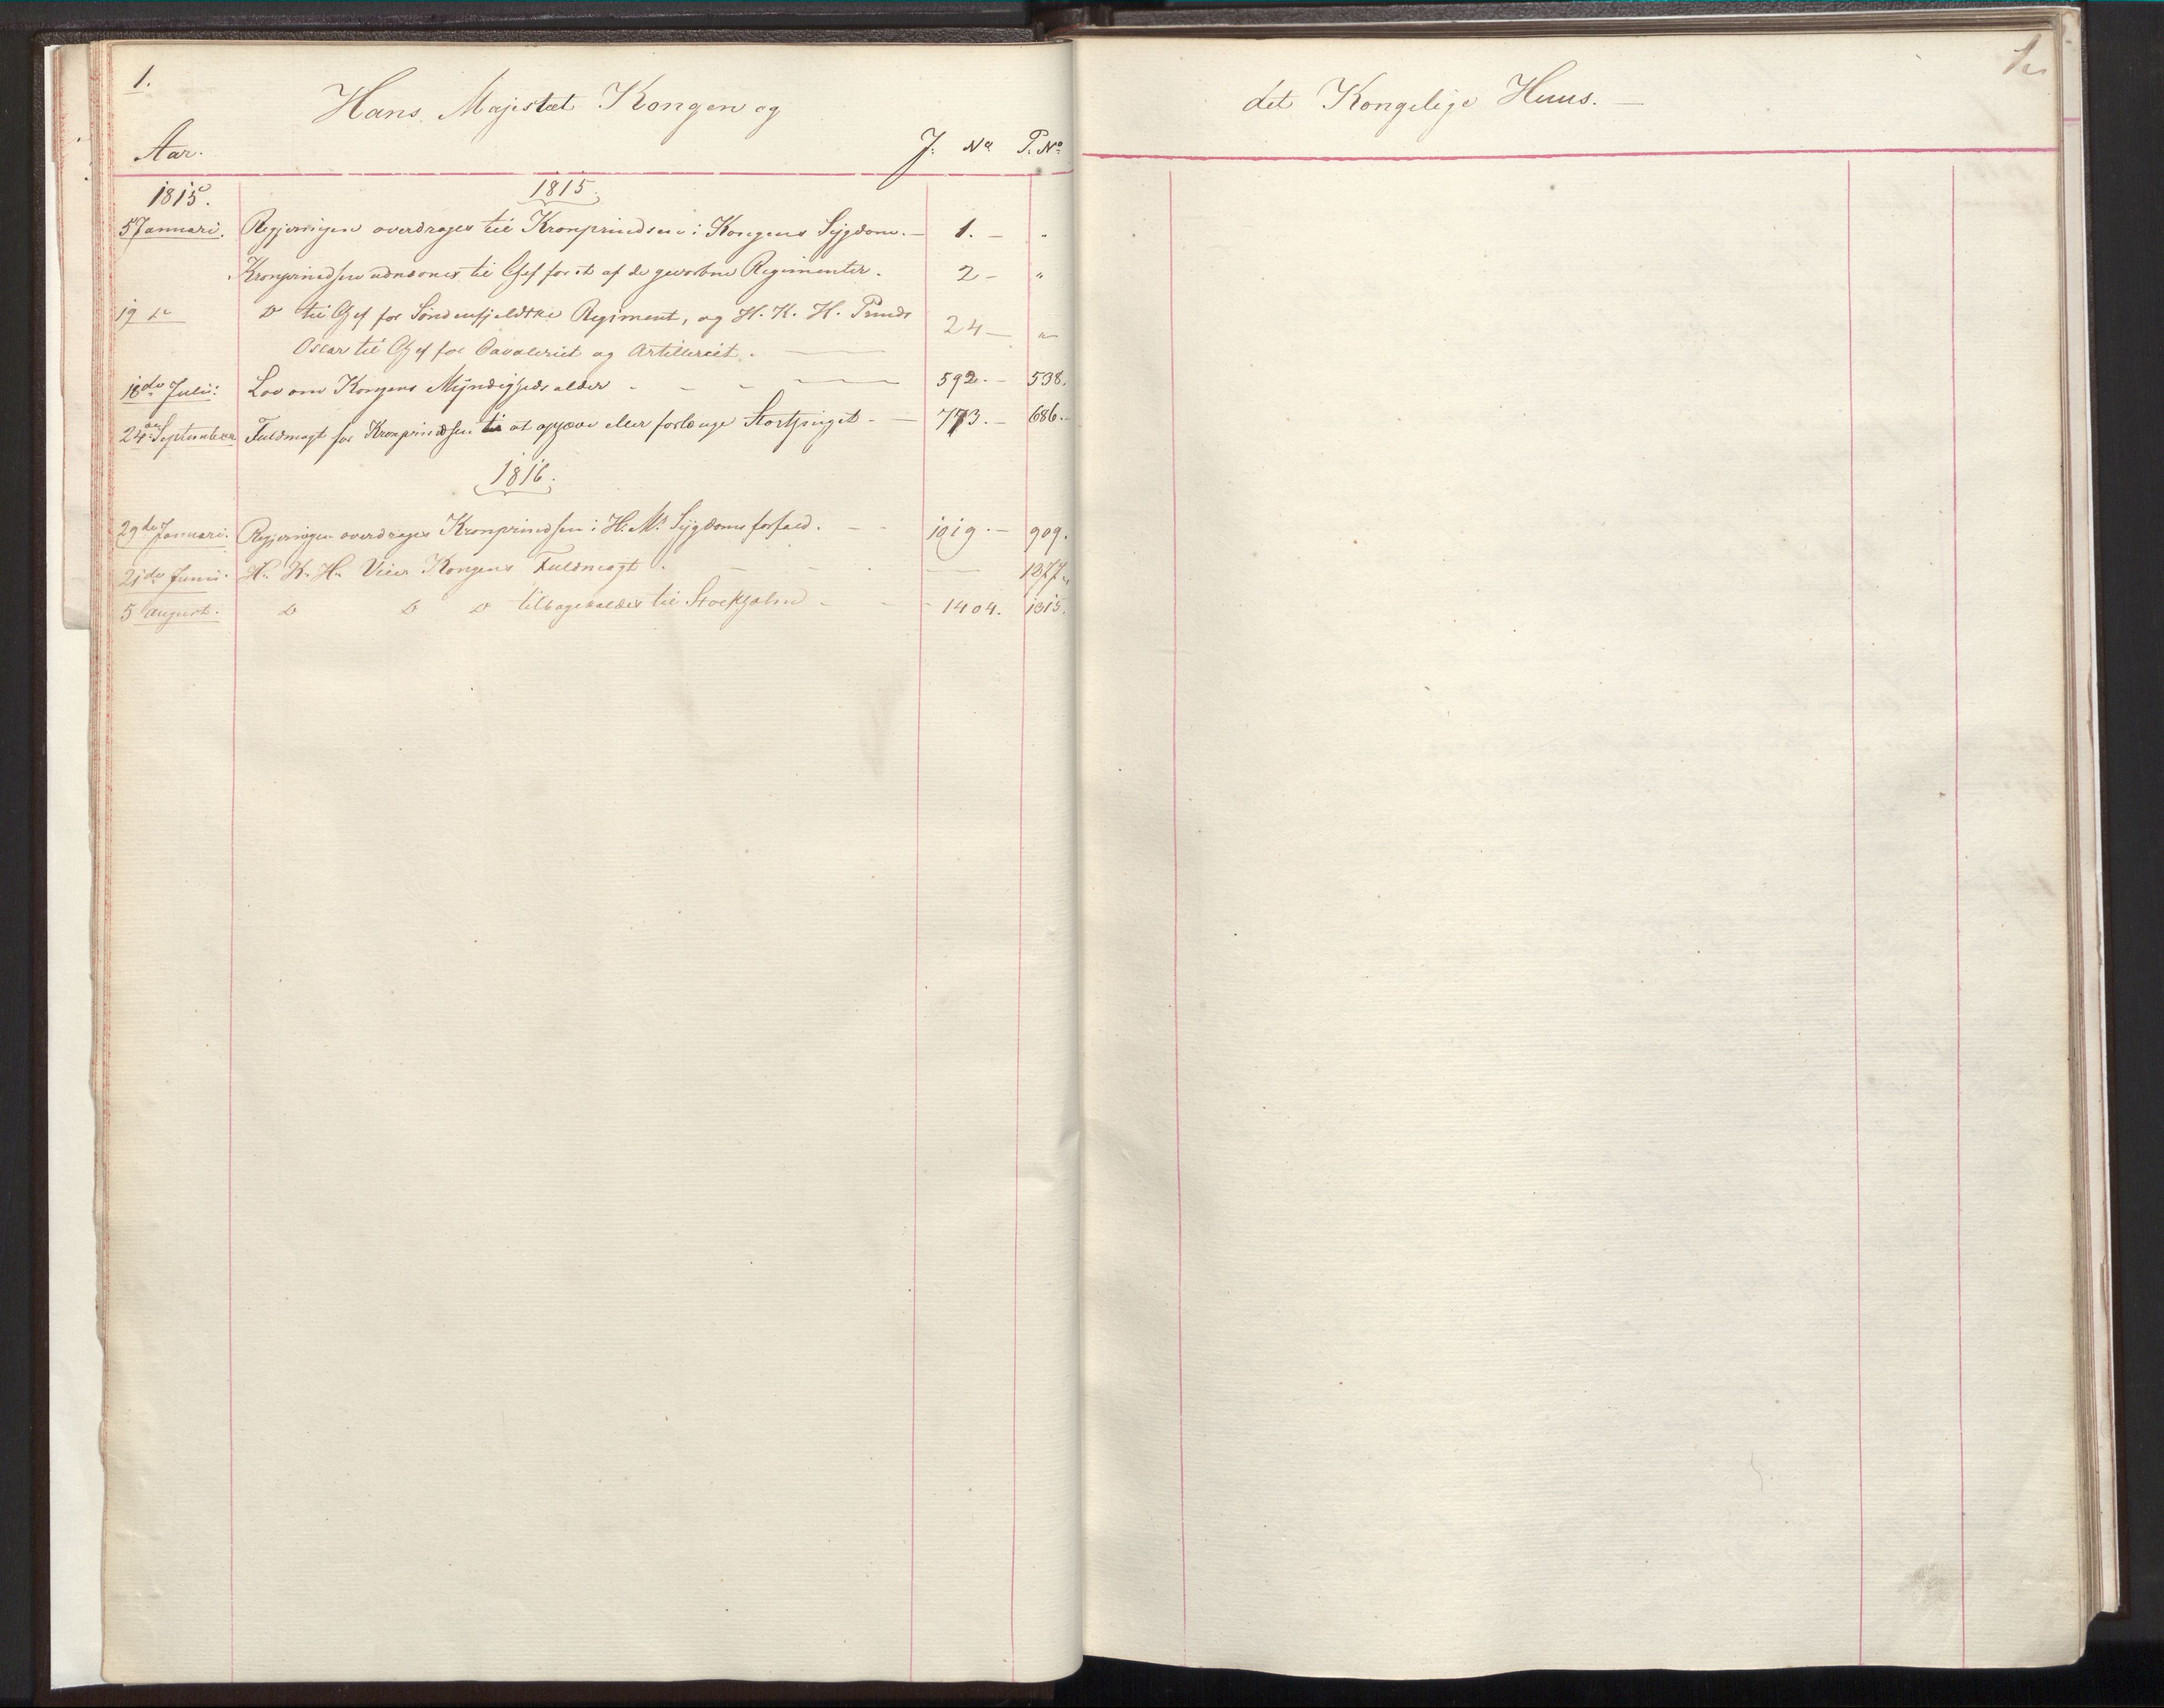 1.
Hans Majestæt Kongen og
Aar. J. No P. No
1815. 1815.
5 Januari. Regjeringen overdrages til Kronprindsen i Kongens Sygdom. — 1. — "
Kronprindsen udnævnes til Chef for et af de gevorbne Regimenter. 2 — "
19 do Do til Chef for Søndenfjeldske Regiment, og H. K. H. Prinds 24 — "
Oscar til Chef for Cavaleriet og Artilleriet. —
18de Julii: Lov om Kongens Myndighedsalder - - - — 592. — 538.
24de September Fuldmagt for Kronprindsen til at opgave eller forlænge Storthinget — 773. — 686. —
1816.
29de Januari. Regjeringen overdrages Kronprindsen i H. Ms Sygdoms forfald. - - 1019. — 909.
21de Junii. H. K. H. Vice Kongens Fuldmagt. - - - — 1277.
5 August. Do Do Do tilbagekaldes til Stockholm - - - 1404. 1315.
det Kongelige Huus. —